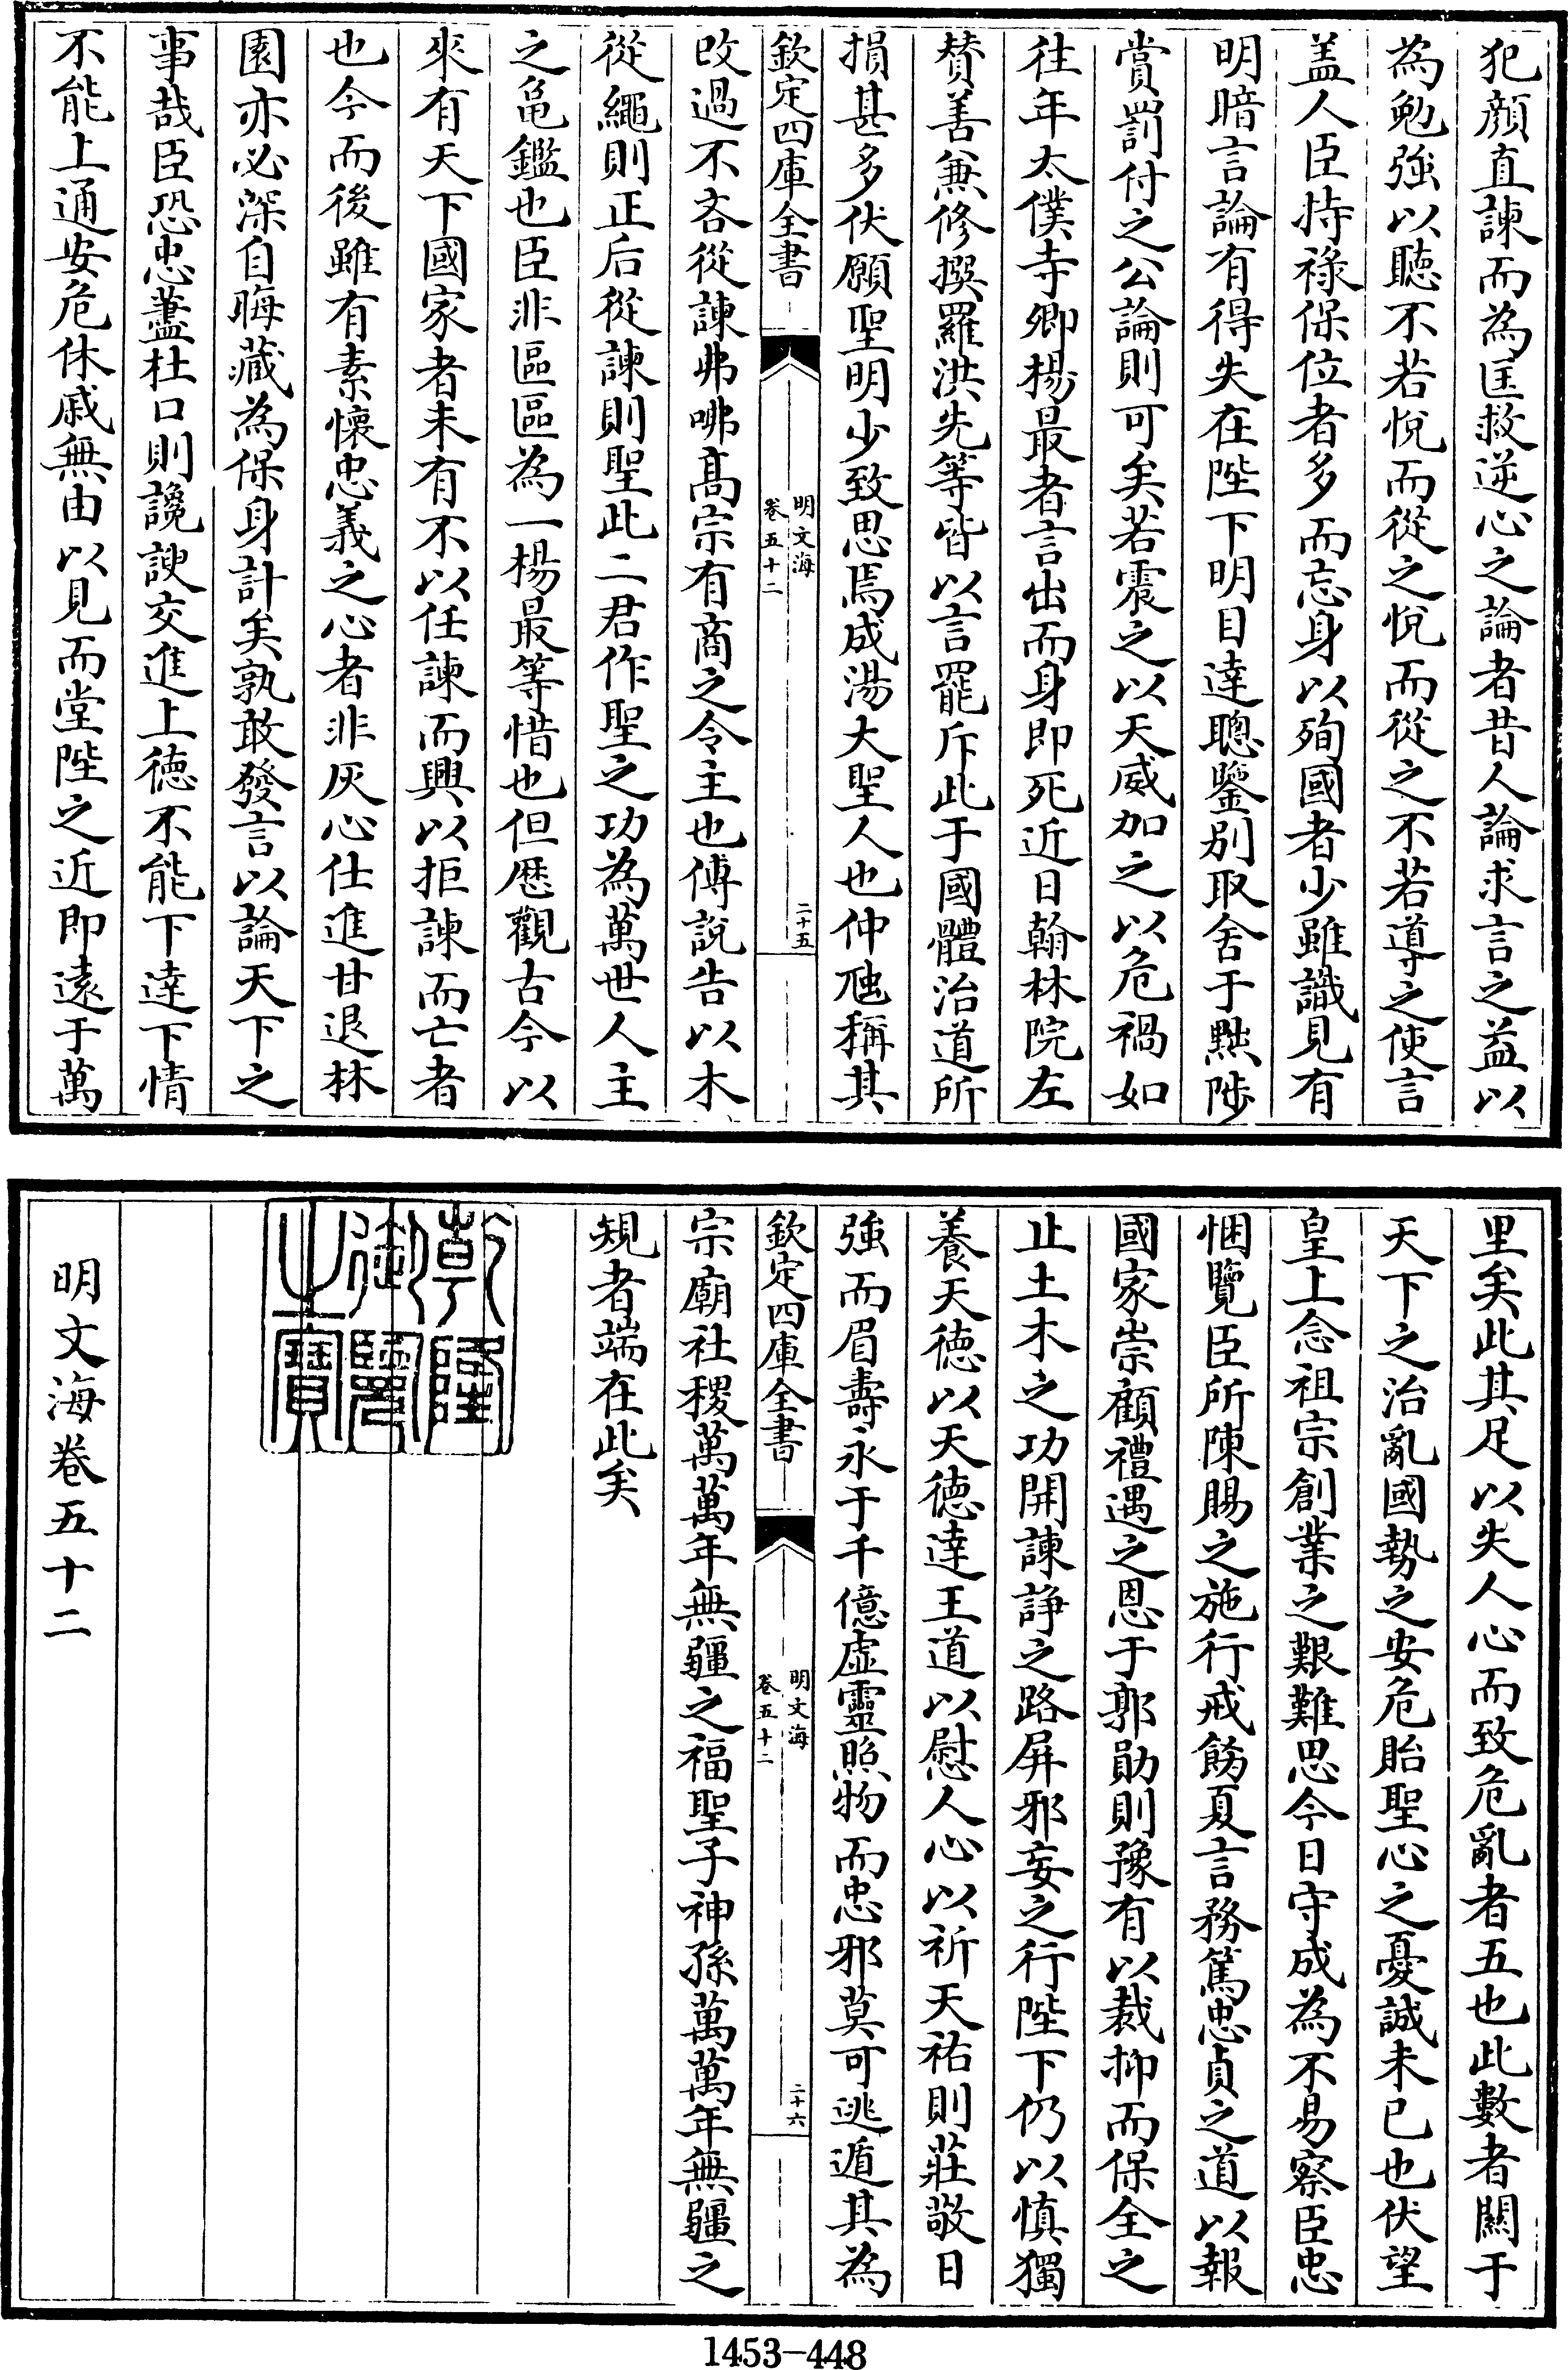 犯顔直諫而為匡救逆心之論者昔人論求言之益以
為勉強以聽不若悅而從之悅而從之不若導之使言
盖人臣持祿保位者多而忘身以殉國者少雖識見有
明暗言論有得失在陛下明目達聰鑒别取舍于黜陟
賞罰付之公論則可矣若震之以天威加之以危禍如
往年太僕寺卿楊最者言出而身即死近日翰林院左
賛善兼修撰羅洪先等皆以言罷斥此于國體治道所
損甚多伏願聖明少致思焉成湯大聖人也仲虺稱其
欽定四庫全書
明文海
卷五十二
二十五
改過不吝從諫弗咈髙宗有商之令主也傅說告以木
從繩則正后從諫則聖此二君作聖之功為萬世人主
之龜鑑也臣非區區為一楊最等惜也但歴觀古今以
來有天下國家者未有不以任諫而興以拒諫而亡者
也今而後雖有素懷忠義之心者非灰心仕進甘退林
園亦必深自晦藏為保身計矣孰敢發言以論天下之
事哉臣恐忠藎杜口則讒諛交進上徳不能下達下情
不能上通安危休戚無由以見而堂陛之近即遠于萬
里矣此其足以失人心而致危亂者五也此數者關于
天下之治亂國勢之安危貽聖心之憂誠未已也伏望
皇上念祖宗創業之艱難思今日守成為不易察臣忠
悃覽臣所陳賜之施行戒飭夏言務篤忠貞之道以報
國家崇顧禮遇之恩于郭勛則豫有以裁抑而保全之
止土木之功開諫諍之路屏邪妄之行陛下仍以慎獨
養天徳以天徳達王道以慰人心以祈天祐則莊敬日
強而眉壽永于千億虚靈照物而忠邪莫可逃遁其為
欽定四庫全書
明文海
卷五十二
二十六
宗廟社稷萬萬年無疆之福聖子神孫萬萬年無疆之
規者端在此矣
乾隆
御覽
之寶
明文海卷五十二
1453-448